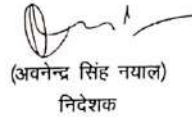 (अवनेन्द्र सिंह नयाल)
निदेशक